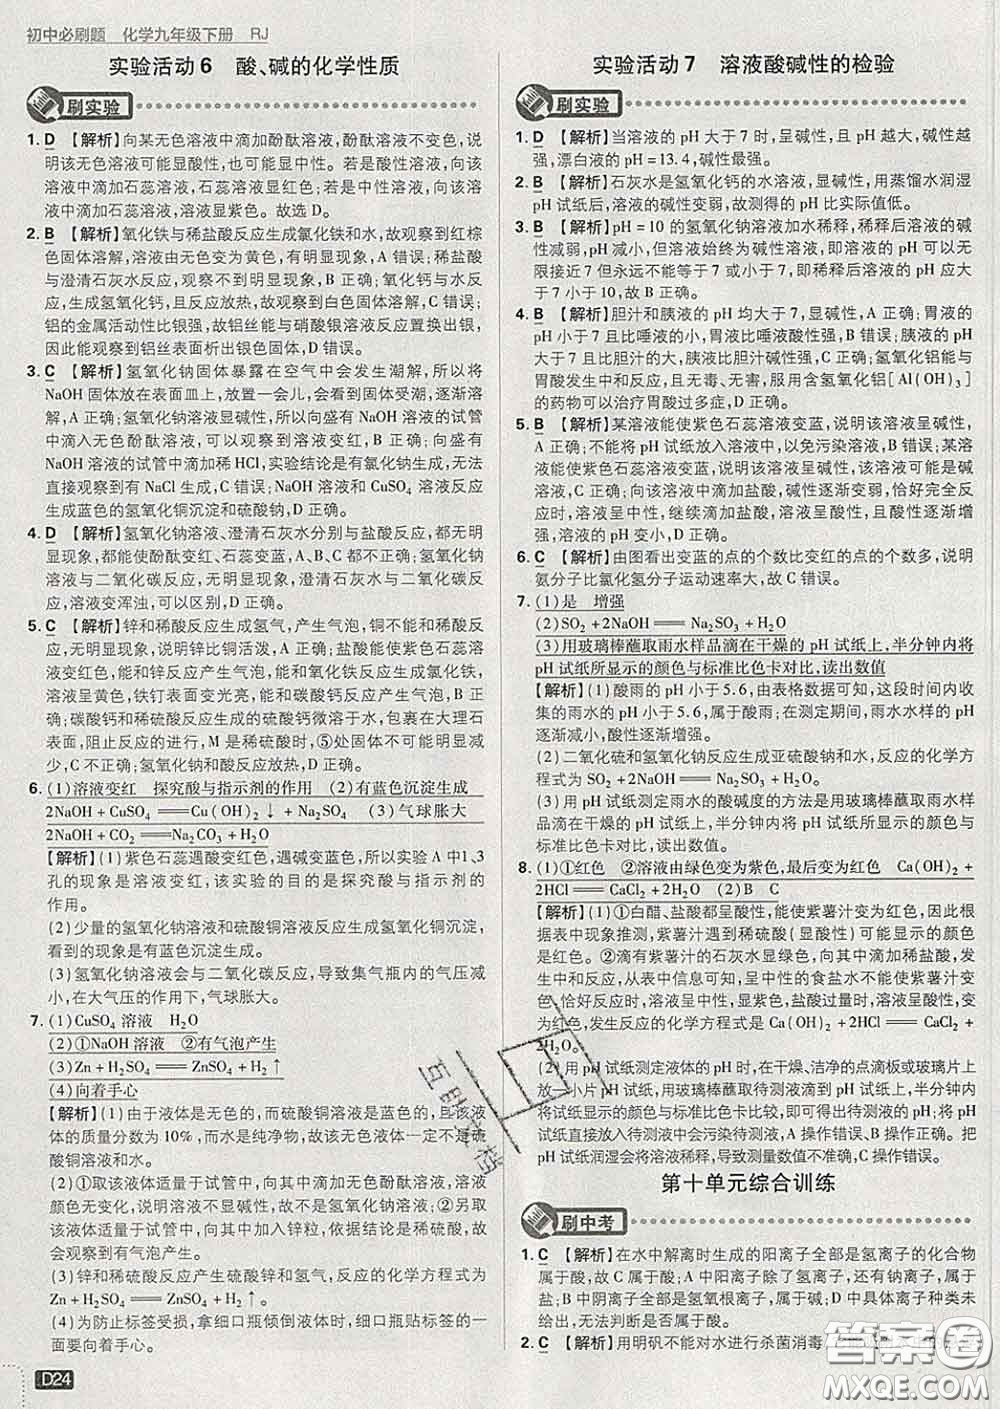 初中必刷题 化学九年级下册 RJ
实验活动6 酸、碱的化学性质
刷实验
1. D 【解析】向某无色溶液中滴加酚酞溶液,酚酞溶液不变色,说
明该无色溶液可能显酸性,也可能显中性。若是酸性溶液,向该
溶液中滴加石蕊溶液,石蕊溶液显红色;若是中性溶液,向该溶
液中滴加石蕊溶液,溶液显紫色。故选D。
2. B 【解析】氧化铁与稀盐酸反应生成氯化铁和水,故观察到红棕
色固体溶解,溶液由无色变为黄色,有明显现象,A错误;稀盐酸
与澄清石灰水反应,观察不到明显现象,B正确;氧化钙与水反
应,生成氢氧化钙,且反应放热,故观察到白色固体溶解,C错误;
铝的金属活动性比银强,故铝丝能与硝酸银溶液反应置换出银,
因此能观察到铝丝表面析出银色固体,D错误。
3. C 【解析】氢氧化钠固体暴露在空气中会发生潮解,所以将
NaOH固体放在表面皿上,放置一会儿,会看到固体受潮,逐渐溶
解,A正确;氢氧化钠溶液显碱性,所以向盛有NaOH溶液的试管
中滴入无色酚酞溶液,可以观察到溶液变红,B正确;向盛有
NaOH溶液的试管中滴加稀HCl,实验结论是有氯化钠生成,无法
直接观察到有NaCl生成,C错误;NaOH溶液和CuSO₄溶液反应
生成蓝色的氢氧化铜沉淀和硫酸钠,D正确。
4. D 【解析】氢氧化钠溶液、澄清石灰水分别与盐酸反应,都无明
显现象,都能使酚酞变红、石蕊变蓝,A、B、C都不正确;氢氧化钠
溶液与二氧化碳反应,无明显现象,澄清石灰水与二氧化碳反
应,溶液变浑浊,可以区别,D正确。
5. C 【解析】锌和稀酸反应生成氢气,产生气泡,铜不能和稀酸反
应,无明显现象,说明锌比铜活泼,A正确;盐酸能使紫色石蕊溶
液变红色,能和锌反应产生气泡,能和氧化铁反应生成氯化铁,
溶液呈黄色,铁钉表面变光亮,能和碳酸钙反应产生气泡,B正
确;碳酸钙和稀硫酸反应生成的硫酸钙微溶于水,包裹在大理石
表面,阻止反应的进行,M是稀硫酸,⑤处固体不可能明显减少,
C不正确;氢氧化钠和酸反应放热,D正确。
6. (1)溶液变红 探究酸与指示剂的作用 (2)有蓝色沉淀生成
2NaOH+CuSO₄══Cu(OH)₂↓+Na₂SO₄ (3)气球胀大
2NaOH+CO₂══Na₂CO₃+H₂O
【解析】(1)紫色石蕊遇酸变红色,遇碱变蓝色,所以实验A中1、3
孔的现象是溶液变红,该实验的目的是探究酸与指示剂的
作用。
(2)少量的氢氧化钠溶液和硫酸铜溶液反应生成氢氧化铜沉淀,
看到的现象是有蓝色沉淀生成。
(3)氢氧化钠溶液会与二氧化碳反应,导致集气瓶内的气压减
小,在大气压的作用下,气球胀大。
7. (1)CuSO₄溶液 H₂O
(2)①NaOH溶液 ②有气泡产生
(3)Zn+H₂SO₄══ZnSO₄+H₂↑
(4)向着手心
【解析】(1)由于液体是无色的,而硫酸铜溶液是蓝色的,且该液
体的质量分数为10%,而水是纯净物,故该无色液体一定不是硫
酸铜溶液和水。
(2)①取该溶液适量于试管中,向其中滴加紫色石蕊溶液,溶液
颜色无变化,说明溶液不显碱性,故一定不是氢氧化钠溶液;②另
取该液体适量于试管中,向其中加入锌粒,若结论是稀硫酸,故
会观察到有气泡产生。
(3)锌和稀硫酸反应生成硫酸锌和氢气,反应的化学方程式为
Zn+H₂SO₄══ZnSO₄+H₂↑。
(4)为防止标签受损,拿细口瓶倾倒液体时,细口瓶贴标签的一
面要向着手心。
D24
实验活动7 溶液酸碱性的检验
刷实验
1. D 【解析】当溶液的pH大于7时,呈碱性,且pH越大,碱性越
强,漂白液的pH=13.4,碱性最强。
2. B 【解析】石灰水是氢氧化钙的水溶液,显碱性,用蒸馏水润湿
pH试纸后,溶液的碱性变弱,故测得的pH比实际值低。
3. B 【解析】pH=10的氢氧化钠溶液加水稀释,稀释后溶液的碱
性减弱,pH减小,但溶液始终为碱性溶液,即溶液的pH可以无
限接近7但永远不能等于7或小于7,即稀释后溶液的pH应大
于7小于10,故B正确。
4. B 【解析】胆汁和胰液的pH均大于7,显碱性,A正确;胃液的
pH小于7且比唾液的小,胃液比唾液酸性强,B错误;胰液的pH
大于7且比胆汁的大,胰液比胆汁碱性强,C正确;氢氧化铝能与
胃酸发生中和反应,且无毒、无害,服用含氢氧化铝[Al(OH)₃]
的药物可以治疗胃酸过多,D正确。
5. B 【解析】某溶液能使紫色石蕊溶液变蓝,说明该溶液呈碱性,
A正确;不能将pH试纸放入溶液中,以免污染溶液,B错误;某溶
液能使紫色石蕊溶液变蓝,说明该溶液呈碱性,该溶液可能是碱
溶液,C正确;向该溶液中滴加盐酸,碱性逐渐变弱,恰好完全反
应时,溶液呈中性,继续滴加盐酸,溶液呈酸性,且酸性逐渐增
强,溶液的酸性不变小,D正确。
6. C 【解析】由图看出变蓝的点的个数比变红的点的个数多,说明
氨分子比氯化氢分子运动速率大,故C错误。
7. (1)是 增强
(2)SO₂+2NaOH══Na₂SO₃+H₂O
(3)用玻璃棒蘸取雨水样品滴在干燥的pH试纸上,半分钟内将
pH试纸所显示的颜色与标准比色卡对比,读出数值
【解析】(1)酸雨的pH小于5.6,由表格数据可知,这段时间内收
集的雨水的pH小于5.6,属于酸雨;在测定期间,雨水水样的pH
减小,酸性逐渐增强。
(2)二氧化硫和氢氧化钠反应生成亚硫酸钠和水,反应的化学方
程式为SO₂+2NaOH══Na₂SO₃+H₂O。
(3)用pH试纸测定雨水的酸碱度的方法是用玻璃棒蘸取雨水样
品滴在干燥的pH试纸上,半分钟内将pH试纸所显示的颜色与
标准比色卡对比,读出数值。
8. (1)①红色 ②溶液由绿色变为紫色,最后变为红色 Ca(OH)₂+
2HCl══CaCl₂+2H₂O (2)B C
【解析】(1)①白醋、盐酸都呈酸性,能使紫薯汁变为红色,因此,
根据表中现象推测,紫薯汁遇到稀硫酸(显酸性)可能显示的颜色
是红色。②滴有紫薯汁的石灰水显绿色,向其中滴入稀盐酸,
发生中和反应,从表中信息可知,呈中性的食盐水不能使紫薯汁变
色,恰好反应时,溶液显中性,显紫色,盐酸过量时,溶液变为红
色,发生反应的化学方程式是Ca(OH)₂+2HCl══CaCl₂+
2H₂O。
(2)用pH试纸测定液体的pH时,在干燥、洁净的点滴板或玻璃片上
放一小片pH试纸,用玻璃棒蘸取待测液滴到pH试纸上,把试
纸显示的颜色与标准比色卡比较,即可得出待测液的pH。将pH
试纸直接放入待测液中会污染待测液,A操作错误,D操作正确。把pH
试纸润湿会将溶液稀释,导致测量数值不准确,C操作错误。
第十单元综合训练
刷中考
1. C 【解析】在水中解离时生成的阳离子全部是氢离子的化合物
属于酸,故C属于酸;A中阳离子除了氢离子,还有钠离子,属于
盐;B中阴离子全部是氢氧根离子,属于碱;D中具体离子种类未
给出,无法判断是否属于酸。
2. C 【解析】用明矾不能对水进行杀菌消毒
答案圈
MXQE.COM